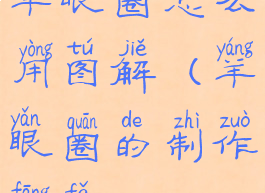 羊眼圈怎么
yòng tú jiě yáng
用图解（羊
yǎn quān de zhì zuò
眼圈的制作
fāng fǎ